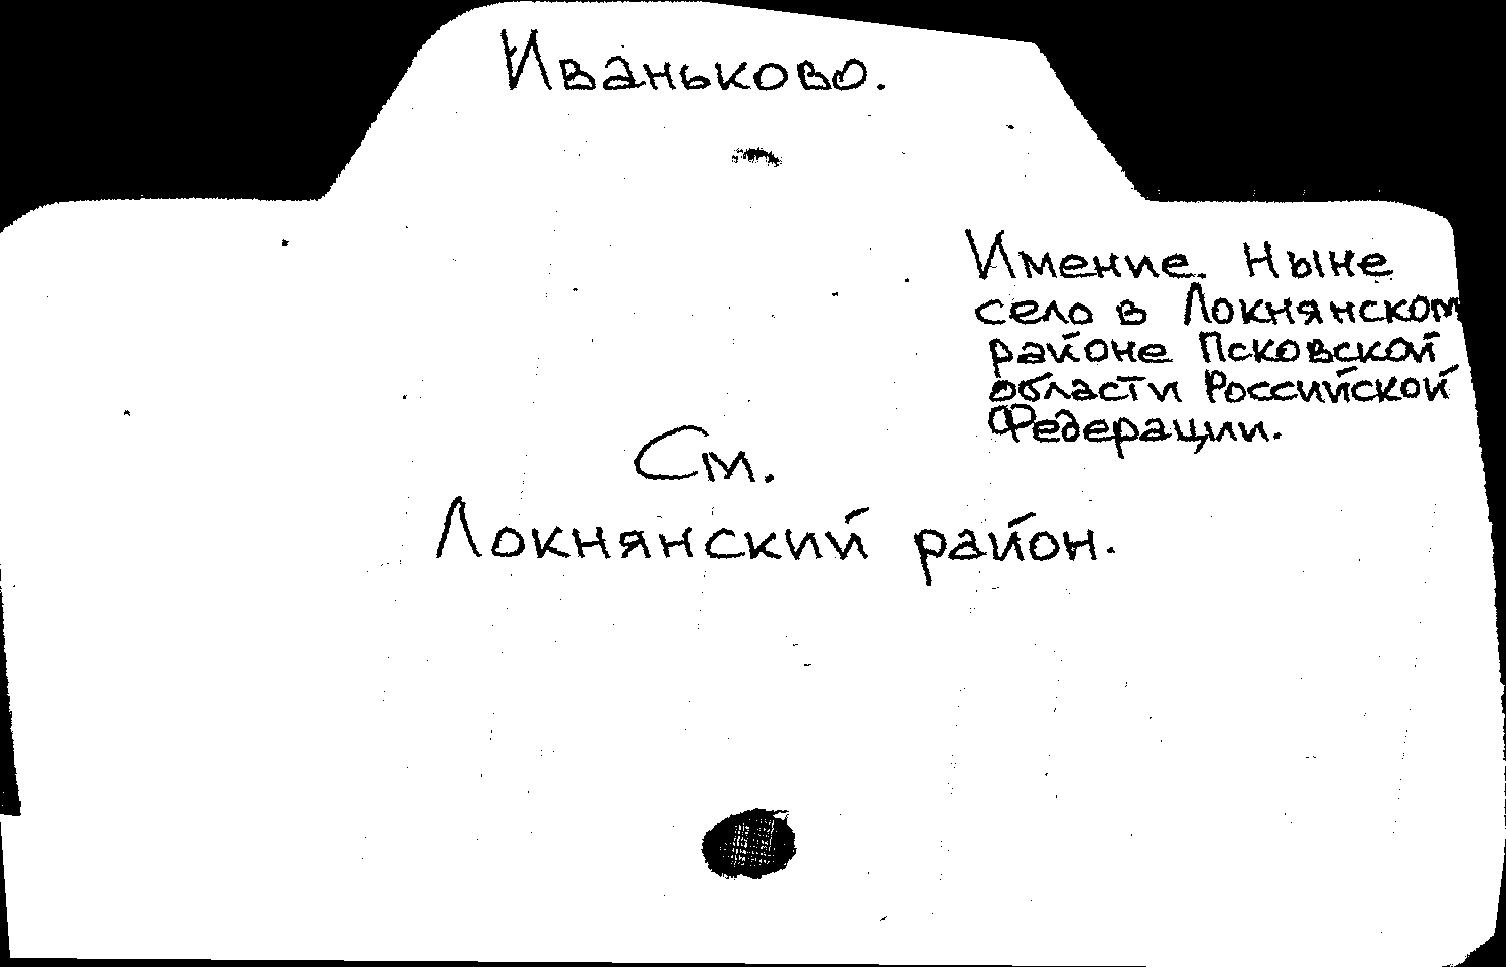 Иваньково.
Имение. Ныне
село в Локнянском
районе Псковской
области Российской
Федерации.
См.
Локнянский район.